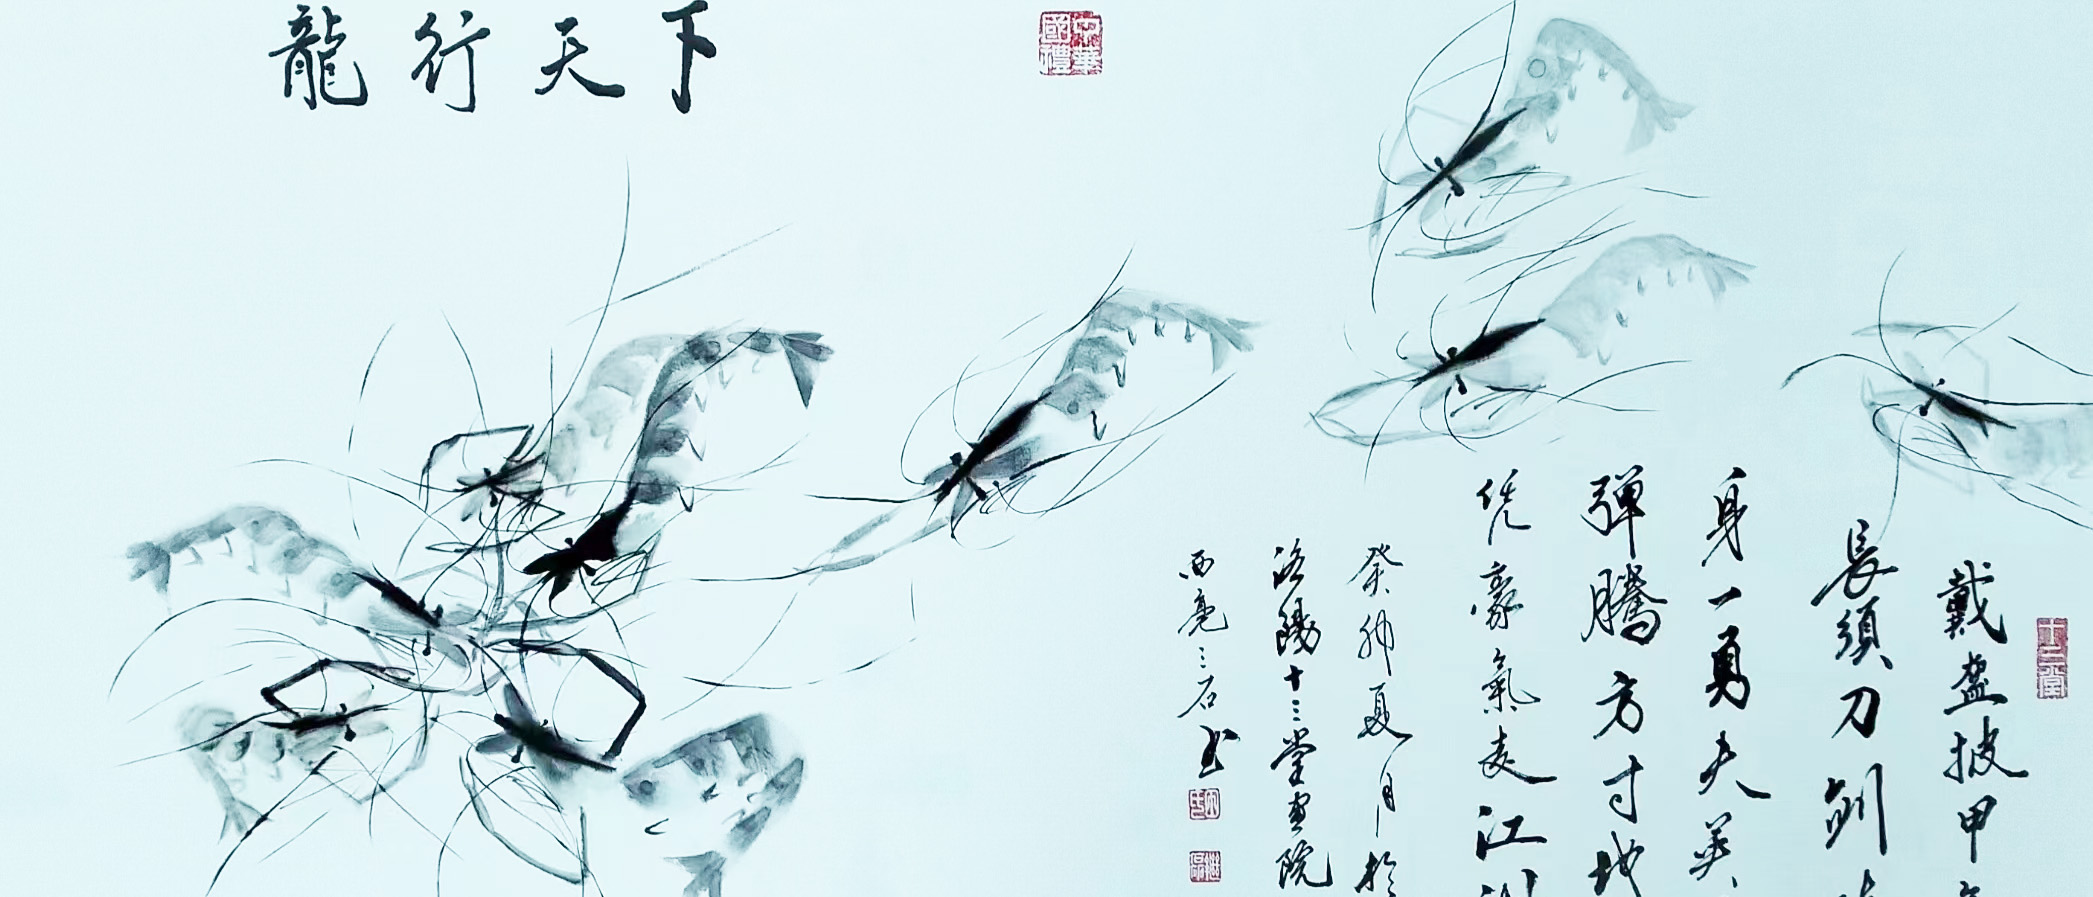 龍行天下
中華
國禮
十三堂
戴盔披甲
長須刀劍
身一勇夫英
彈騰方寸地
凭豪氣走江
癸卯夏月於
洛陽十三堂畫院
西亮三石